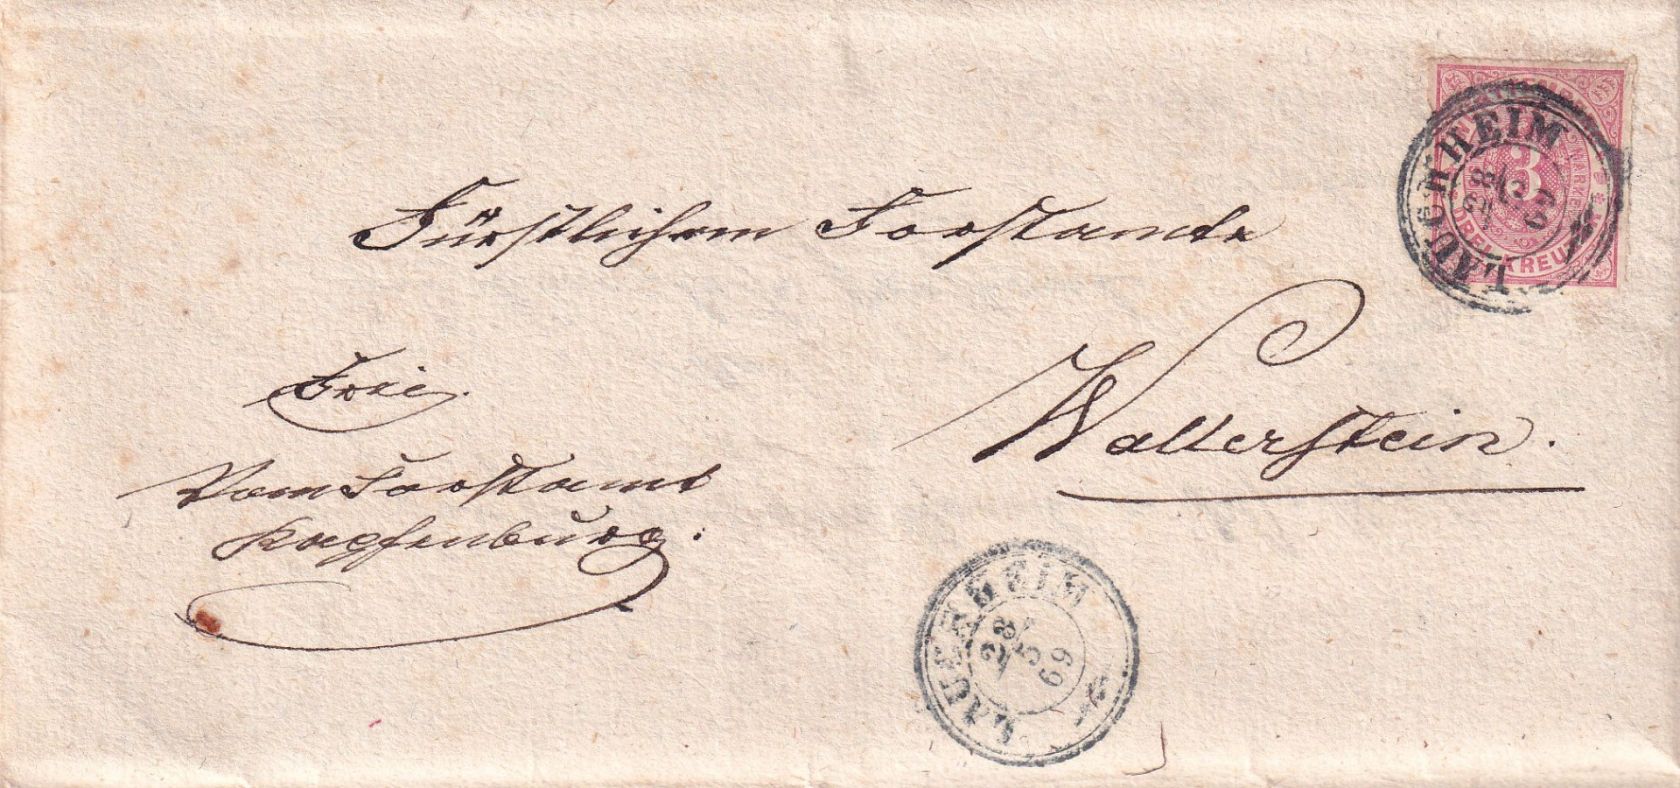 Fürstlichem Forstamte
Wallerstein.
Frei.
Vom Forstamt
Kapfenburg.
LAUCHHEIM
28
5
69
3
DREI KREUZER
LAUCHHEIM
28
5
69